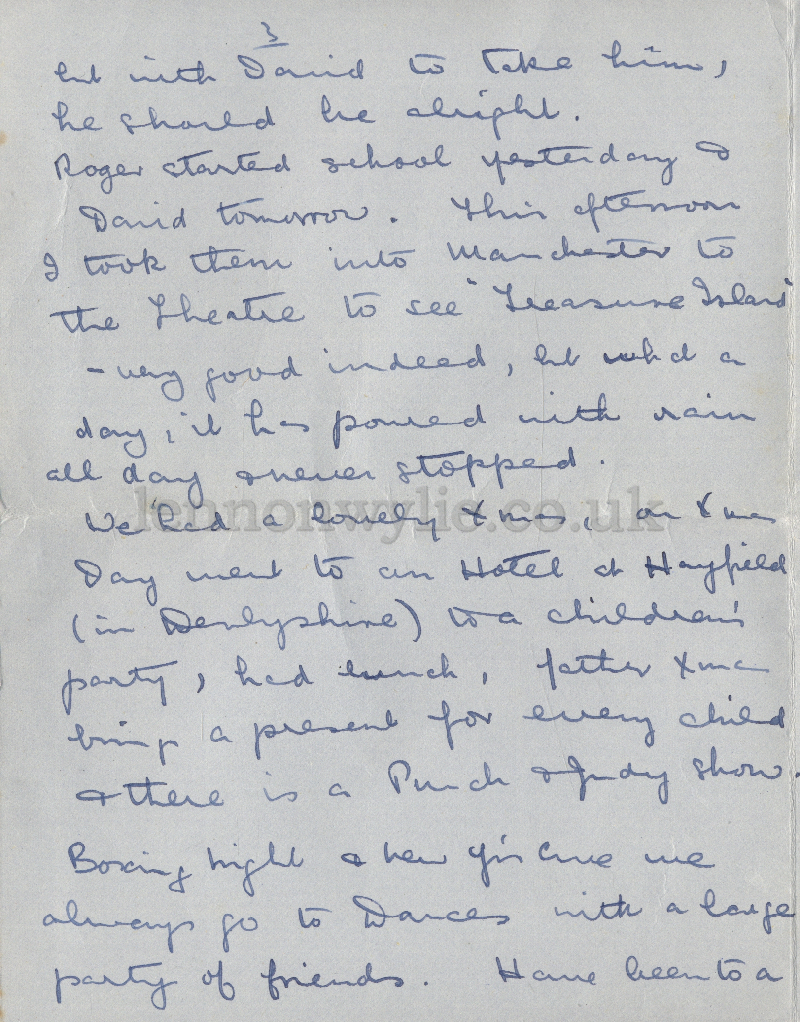 3
but with David to take him,
he should be alright.
Roger started school yesterday &
David tomorrow. This afternoon
I took them into Manchester to
the Theatre to see "Treasure Island"
- very good indeed, but what a
day, it has poured with rain
all day & never stopped.
lennonwylie.co.uk
We had a lovely Xmas, on Xmas
Day went to an Hotel at Hayfield
(in Derbyshire) to a children's
party, had lunch, father Xmas
brings a present for every child
& there is a Punch & Judy show.
Boxing night & New Yr's Eve we
always go to Dances with a large
party of friends. Have been to a